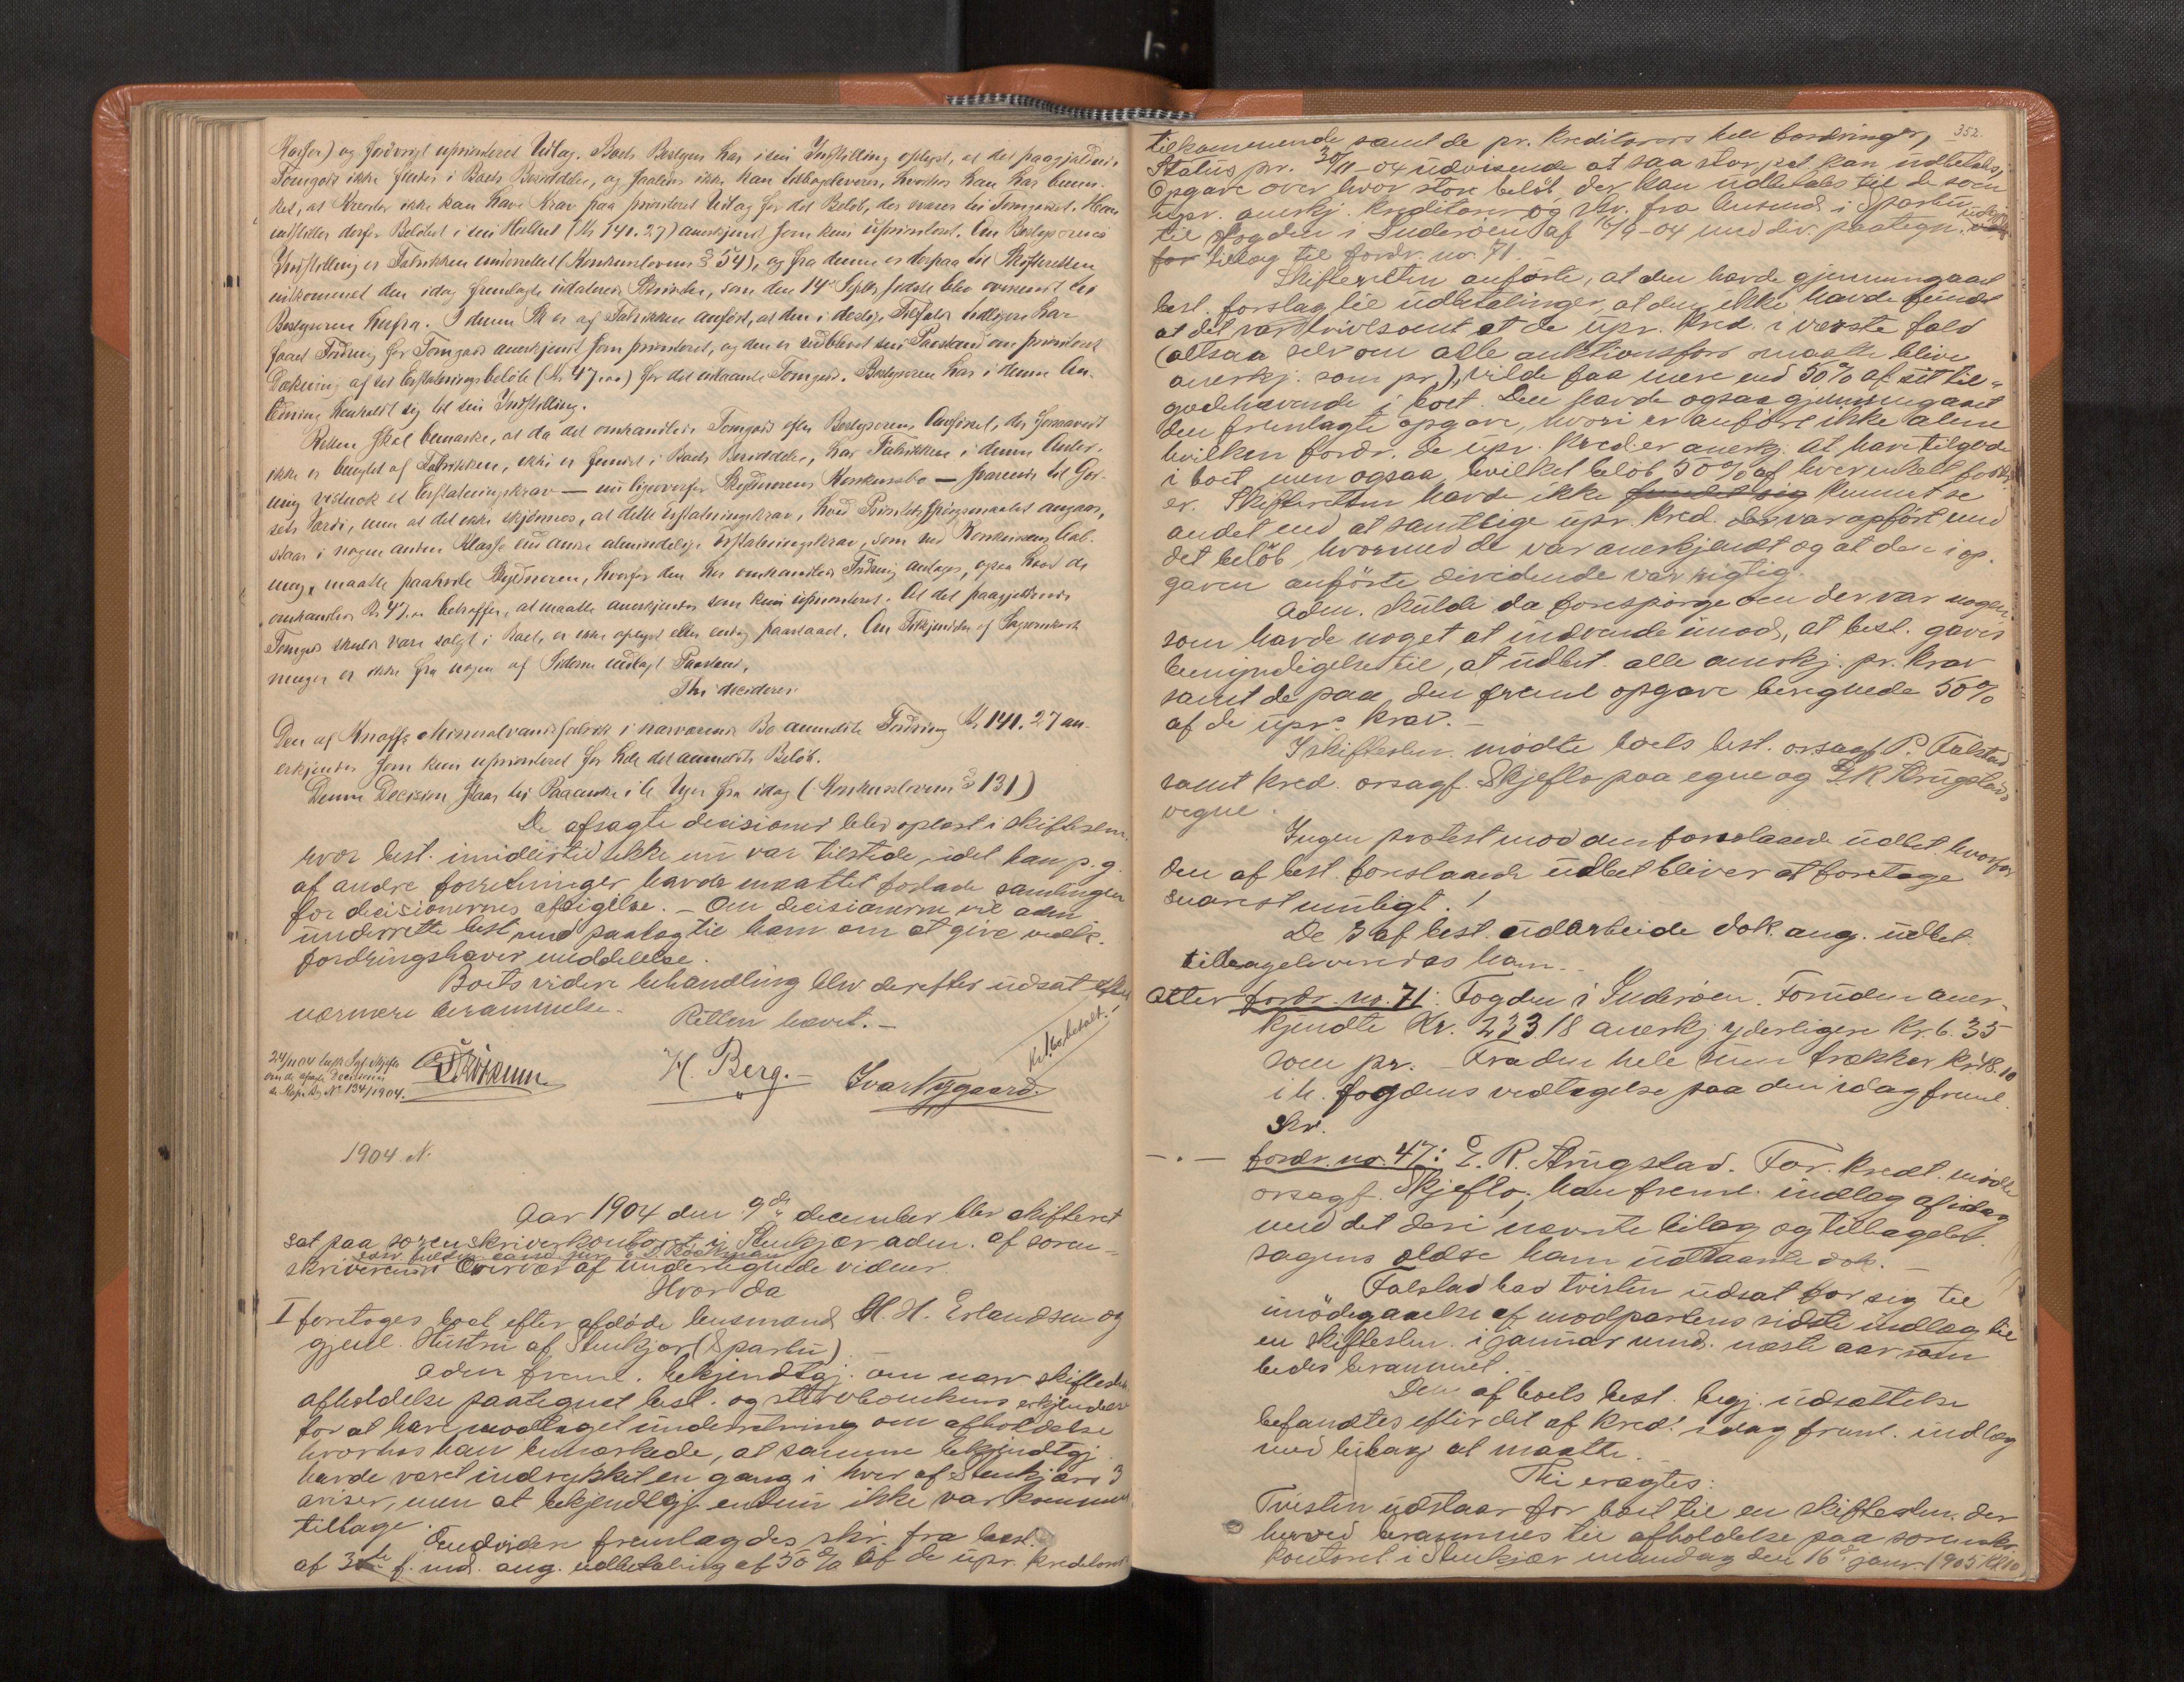 Kasser) og forøvrigt uprioriteret Udlæg. Boets Bestyrer har i sin Indstilling oplyst, at det paagjældende
Tomgods ikke findes i Boets Besiddelse, og saaledes ikke kan tilbageleveres, hvorhos han har bemær-
ket, at Kreditor ikke kan have Krav paa prioriteret Udlæg for det Beløb, der svarer til Tomgodset. Han
indstiller derfor Beløbet i sin Helhed (Kr 141.27) anerkjendt som kun uprioriteret. Om Bestyrerens
Indstilling er Fabrikken underrettet (Konkurslovens § 54), og fra denne er derpaa til Skifteretten
indkommet den idag fremlagte udaterede Skrivelse, som den 14de Septbr sidstl. blev oversendt
Bestyreren herfra. I denne Skr er af Fabrikken anført, at den i deslige Tilfælde tidligere har
faaet Fordring for Tomgods anerkjendt som prioriteret, og den er vedblevet sin Paastand om prioriteret
Dækning af det Erstatningsbeløb (Kr. 47.00) for det udlaante Tomgods. Bestyreren har i denne An-
ledning henholdt sig til sin Indstilling.
Retten skal bemærke, at da det omhandlede Tomgods efter Bestyrerens Anførsel, der forsaavidt
ikke er benegtet af Fabrikken, ikke er fundet i Boets Besiddelse, har Fabrikken i denne Anled-
ning vistnok et Erstatningskrav — men ligeoverfor Skyldnerens Konkursbo — svarende til God-
sets Værdi, men at det ikke skjønnes, at dette Erstatningskrav, hvad Prioritetsspørgsmaalet angaar,
staar i nogen anden Klasse end andre almindelige Erstatningskrav, som ved Konkursens Aab-
ning maatte paahvile Skyldneren, hvorfor den her omhandlede Fordring antages, ogsaa hvad de
omhandlede Kr 47.00 betræffer, at maatte anerkjendes som kun uprioriteret. At det paagjældende
Tomgods skulde være solgt i Boet, er ikke oplyst eller endog paastaaet. Om Tilkjendelse af Sagsomkost-
ninger er ikke fra nogen af Siderne nedlagt Paastand.
Thi decideres:
Den af Knoffs Mineralvandfabrik i nærværende Bo anmeldte Fordring Kr 141.27 an-
erkjendes som kun uprioriteret for hele det anmeldte Beløb.
Denne Decision staar til Paaanke i 6 Uger fra idag (Konkurslovens § 131)
De afsagte decisioner blev oplæst i skiftesaml.
hvor best. imidlertid ikke nu var tilstede, idet han p. g.
af andre forretninger havde maattet forlade samlingen
før decisionernes afsigelse. – Om decisionerne vil adm
underrette best. med paalæg til ham om at give vedk.
fordringshaver meddelelse.
Boets videre behandling blev derefter udsat til
nærmere berammelse.
Retten hævet. –
24/11 04
om de afsagte decisioner
No 134/1904.
H. Berg. –
Ivar Nygaard.
1904 N.
Aar 1904 den 9de december blev skifteret
sat paa sorenskriverkontoret i Stenkjær adm. af soren-
skriveren i Overvær af undertegnede vidner.
Hvor da
I foretoges boet efter afdøde lensmand H. H. Erlandsen og
gjenl. Hustru af Stenkjær (Sparbu)
Adm freml. bekjendtgj. om nærv skiftesaml.
afholdelse paategnet best. og stervboenkens erkjendelse
for at have modtaget underretning om afholdelse
hvorhos han bemærkede, at samme bekjendtgj
havde været indrykket en gang i hver af Stenkjærs 3
aviser, men at bekjendtgj. endnu ikke var kommen
tilbage.
Endvidere fremlagdes skr. fra best.
af 3die f. md. ang. udbetaling af 50 % af de upr. kreditorer
352.
tilkommende samt de pr. kreditorers hele fordringer,
Status pr. 30/11 - 04 udvisende at saa stor pct kan udbetales,
Opgave over hvor store beløb, der kan udbetales til de som
upr. anerkj. kreditorer og skr. fra lensmd. i Sparbu
til fogden i Inderøen af 16/9 - 04 med div. paategn.
for tillæg til fordr. no. 71. –
Skifteretten anførte, at den havde gjennemgaaet
best. forslag til udbetalinger, at den ikke havde fundet
at det var tvivlsomt at de upr. kred. i værste fald
(altsaa selv om alle auktionsford maatte blive
anerkj. som pr.), vilde faa mere end 50 % af sit til-
godehavende i boet. Den havde ogsaa gjennemgaaet
den fremlagte opgave, hvori er anført ikke alene
hvilken fordr. de upr. kred. er anerkj. at have tilgode
i boet men ogsaa, hvilket beløb 50 % af hver enkelt fordr.
er. Skifteretten havde ikke fundet sig kunnet se
andet end at samtlige upr. kred. der var opført med
det beløb, hvormed de var anerkjendt og at den i op-
gaven anførte dividende var rigtig.
Adm. skulde da forespørge om der var nogen,
som havde noget at indvende imod, at best. gaves
bemyndigelse til, at udbet. alle anerkj. pr. krav
samt de paa den freml opgave beregnede 50 %
af de upr. krav. –
I skiftesln. mødte boets best. orsagf. P. Falstad
samt kred. orsagf. Skjeflo paa egne og E. R. Strugstads
vegne.
Ingen protest mod den foreslaaede udbet. hvorfor
den af best. foreslaaede udbet bliver at foretage
snarest muligt. !
De 3 af best. udarbeide dok. ang. udbet.
tilbageleveredes ham. –
Atter fordr. no. 71: Fogden i Inderøen. Foruden aner-
kjendte Kr. 223.18 anerkj. yderligere Kr. 6.35
som pr. – Fra den hele sum trækkes kr 48.10
i h. fogdens vedtagelse paa den idag freml.
Skr.
– . – fordr. no. 47: E. R. Strugstad. For kred. mødte
orsagf. Skjeflo; han freml. indlæg af idag
med det deri nævnte bilag og tilbagelev.
sagens ældre ham udlaante dok. –
Falstad bad tvisten udsat for sig til
imødegaaelse af modpartens sidste indlæg til
en skiftesln. i januar mnd. næste aar som
bedes berammet. –
Den af boets best. begj. udsættelse
befandtes efter det af kred. idag freml. indlæg
med bilag at maatte.
Thi eragtes:
Tvisten udstaar for boet til en skiftesln. der
herved berammes til afholdelse paa sorenskr.
kontoret i Stenkjær mandag den 16de janr. 1905 Kl 10